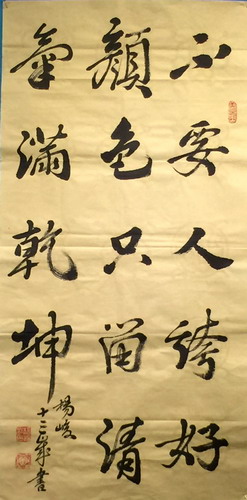 不要人誇好
顏色只留清
氣滿乾坤
楊峻
十二歲書